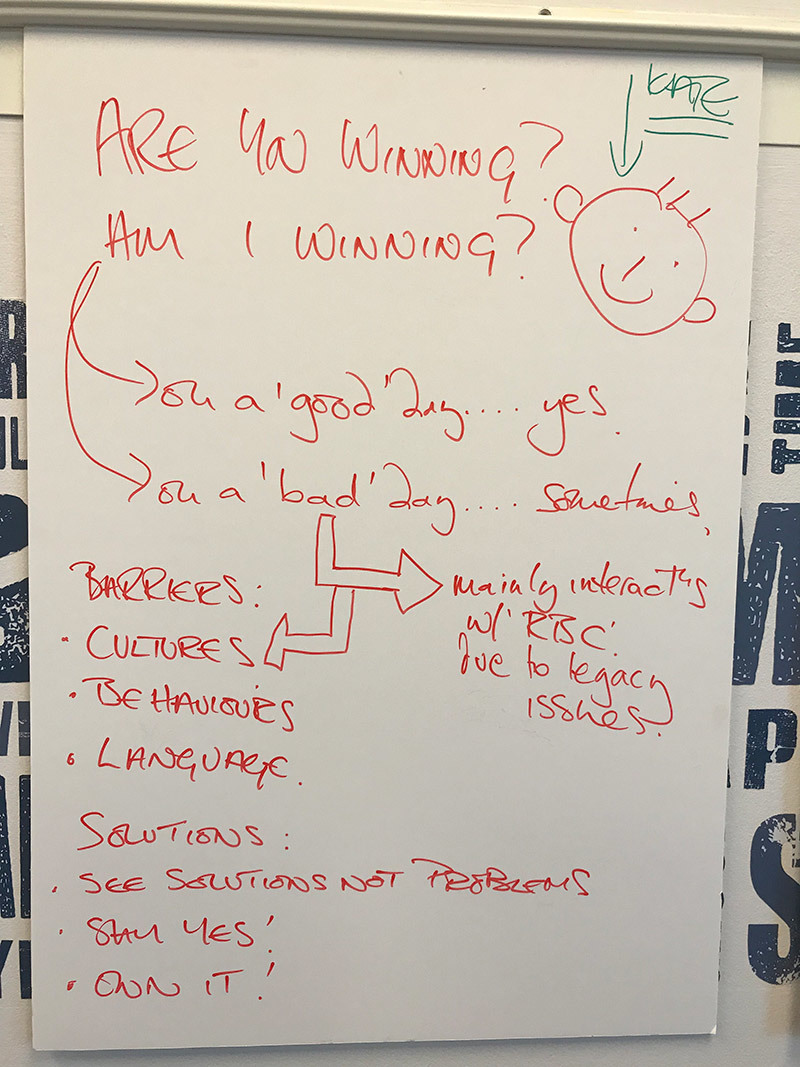 KATE
ARE YOU WINNING?
AM I WINNING?
on a 'good' day.... yes.
on a 'bad' day.... sometimes,
mainly interact'ns
w/ 'RBC'
due to legacy
issues.
BARRIERS:
• CULTURES
• BEHAVIOURS
• LANGUAGE.
SOLUTIONS:
• SEE SOLUTIONS NOT PROBLEMS
• SAY YES!
• OWN IT!